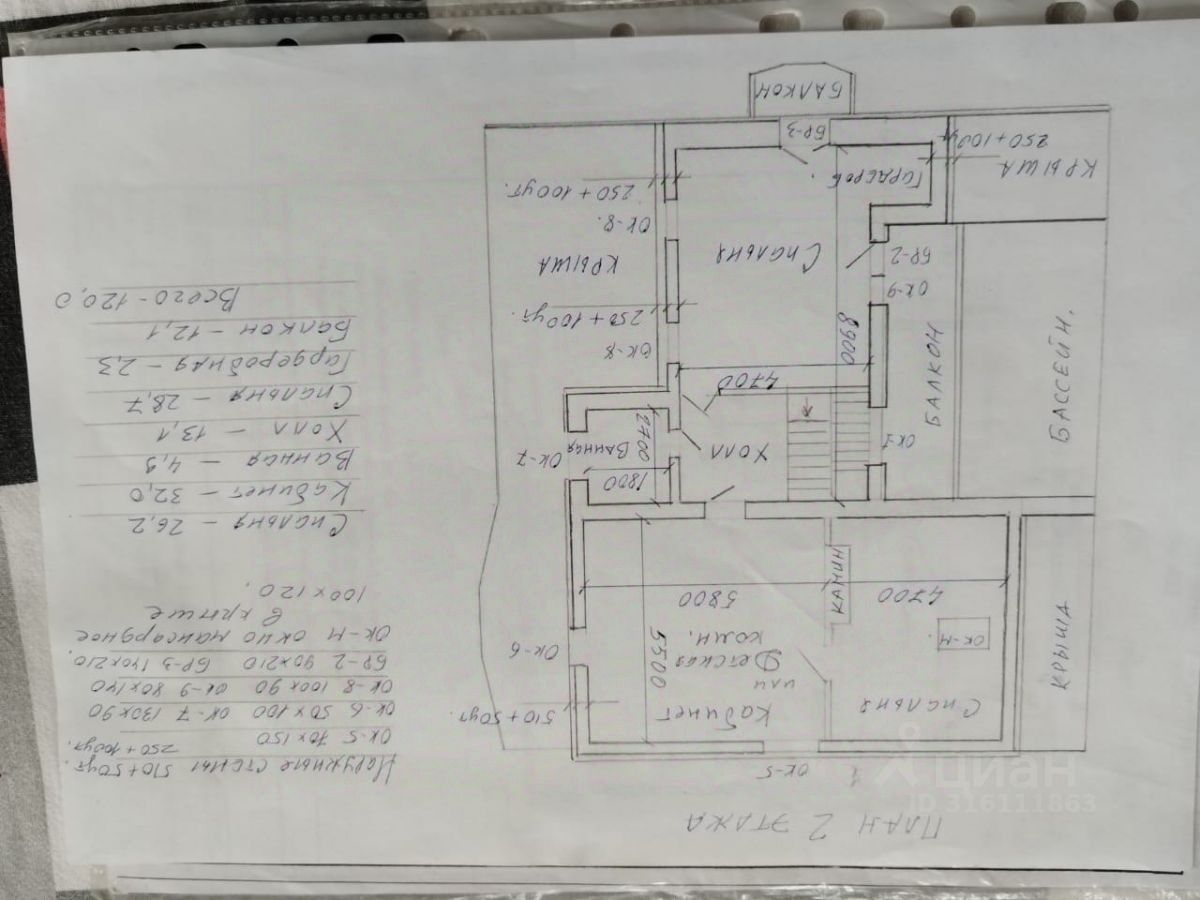 ПЛАН 2 ЭТАЖА
ОК-5
1
Спальня
Кабинет
или
Детская
комн.
ОК-М.
КРЫША
КАМИН
4700
5800
5500
510+50ут.
ОК-6
Холл
Ванная
1800
2700
ОК-7
ОК-1
БАЛКОН
БАССЕЙН.
4700
8900
Спальня
ОК-8
250+100ут.
КРЫША
ОК-8.
250+100ут.
ОК-9
БР-2
Гардероб.
КРЫША
250+100ут
БР-3
БАЛКОН
Наружные стены 510+50ут.
250+100ут.
ОК-5 70х150
ОК-6 50х100 ОК-7 130х90
ОК-8 100х90 ОК-9 80х140
БР-2 90х210 БР-3 140х210.
ОК-М окно мансардное
в крыше
100х120.
Спальня – 26,2
Кабинет – 32,0
Ванная – 4,9
Холл – 13,1
Спальня – 28,7
Гардеробная – 2,3
Балкон – 12,1
Всего – 120,0
циан
ID 316111863